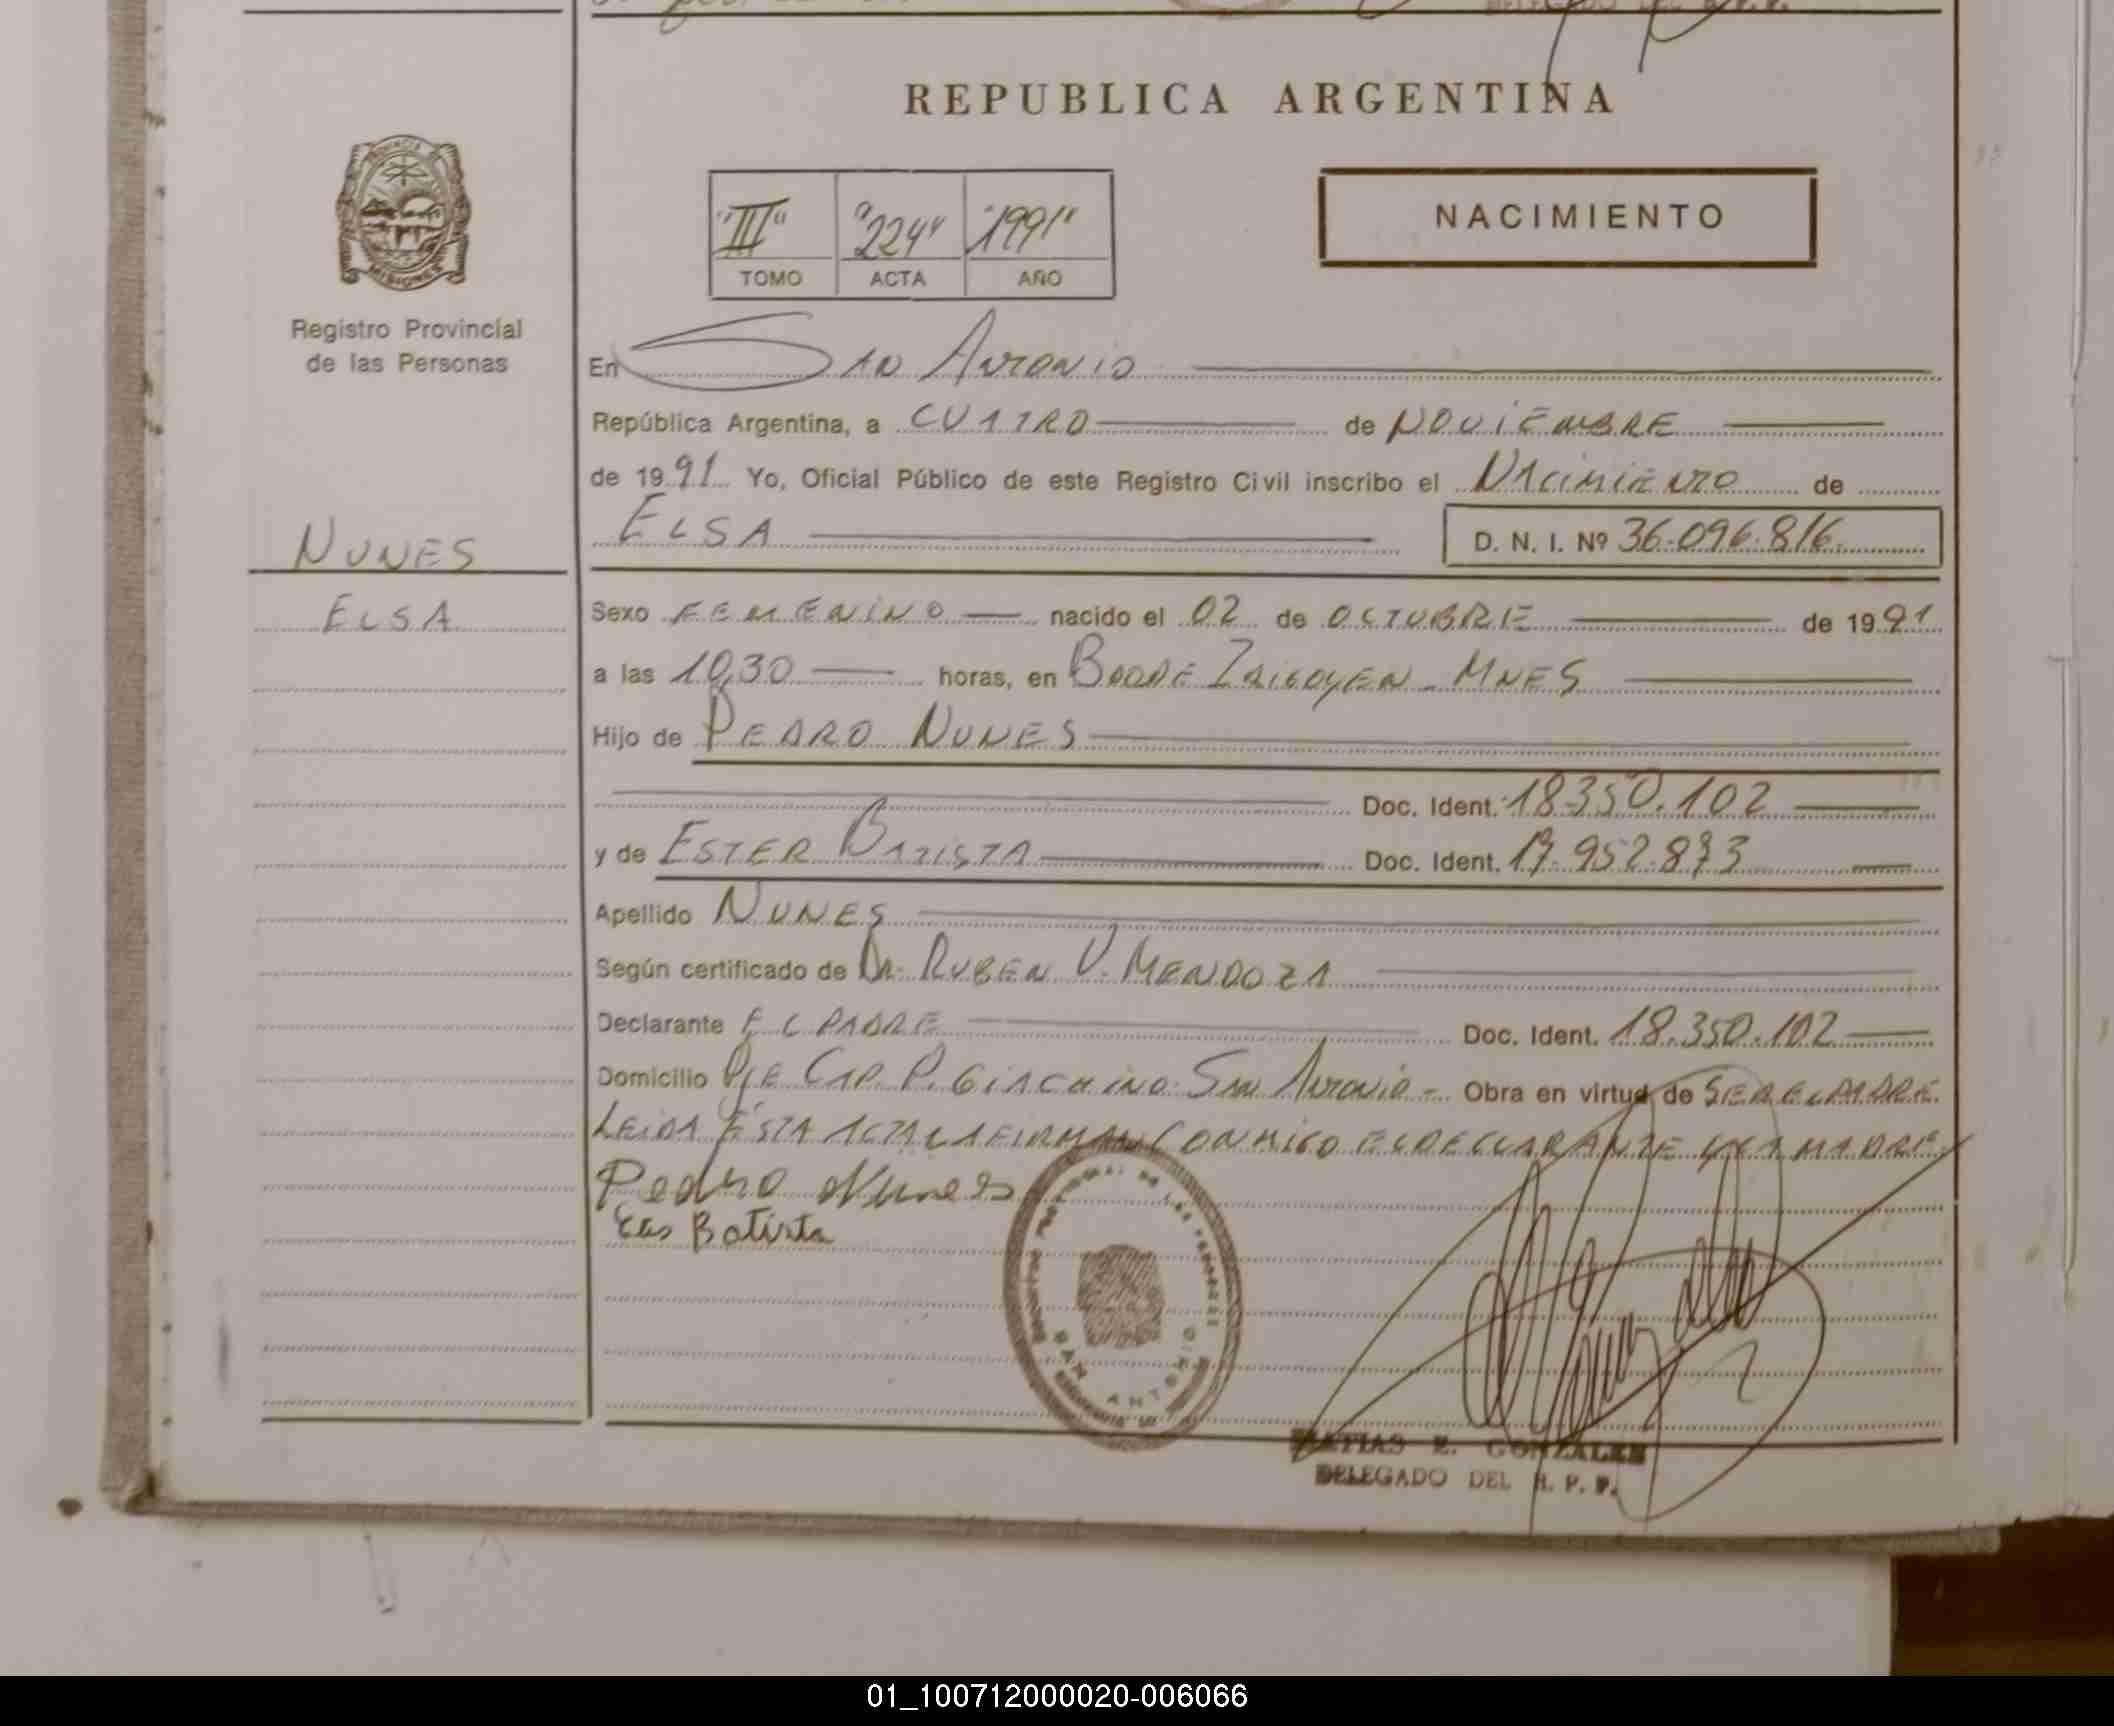 REPUBLICA ARGENTINA
"III" "224" "1991"
TOMO ACTA AÑO
NACIMIENTO
PROVINCIA DE
MISIONES
Registro Provincial
de las Personas
NUNES
ELSA
En SAN ANTONIO
República Argentina, a CUATRO de NOVIEMBRE
de 1991 Yo, Oficial Público de este Registro Civil inscribo el NACIMIENTO de
ELSA D. N. I. Nº 36.096.816
Sexo FEMENINO nacido el 02 de OCTUBRE de 1991
a las 10,30 horas, en BDODE IRIGOYEN - MNES
Hijo de PEDRO NUNES
Doc. Ident. 18.350.102
y de ESTER BATISTA Doc. Ident. 17.952.873
Apellido NUNES
Según certificado de DR. RUBEN V. MENDOZA
Declarante EL PADRE Doc. Ident. 18.350.102
Domicilio PJE CAP. P. GIACHINO. SAN ANTONIO - Obra en virtud de SER EL PADRE.
LEIDA ÉSTA ACTA LA FIRMAN CONMIGO EL DECLARANTE Y LA MADRE.
Pedro Nunes
Batista
SAN ANTONIO
MATIAS E. GONZALEZ
DELEGADO DEL R. P. P.
01_100712000020-006066